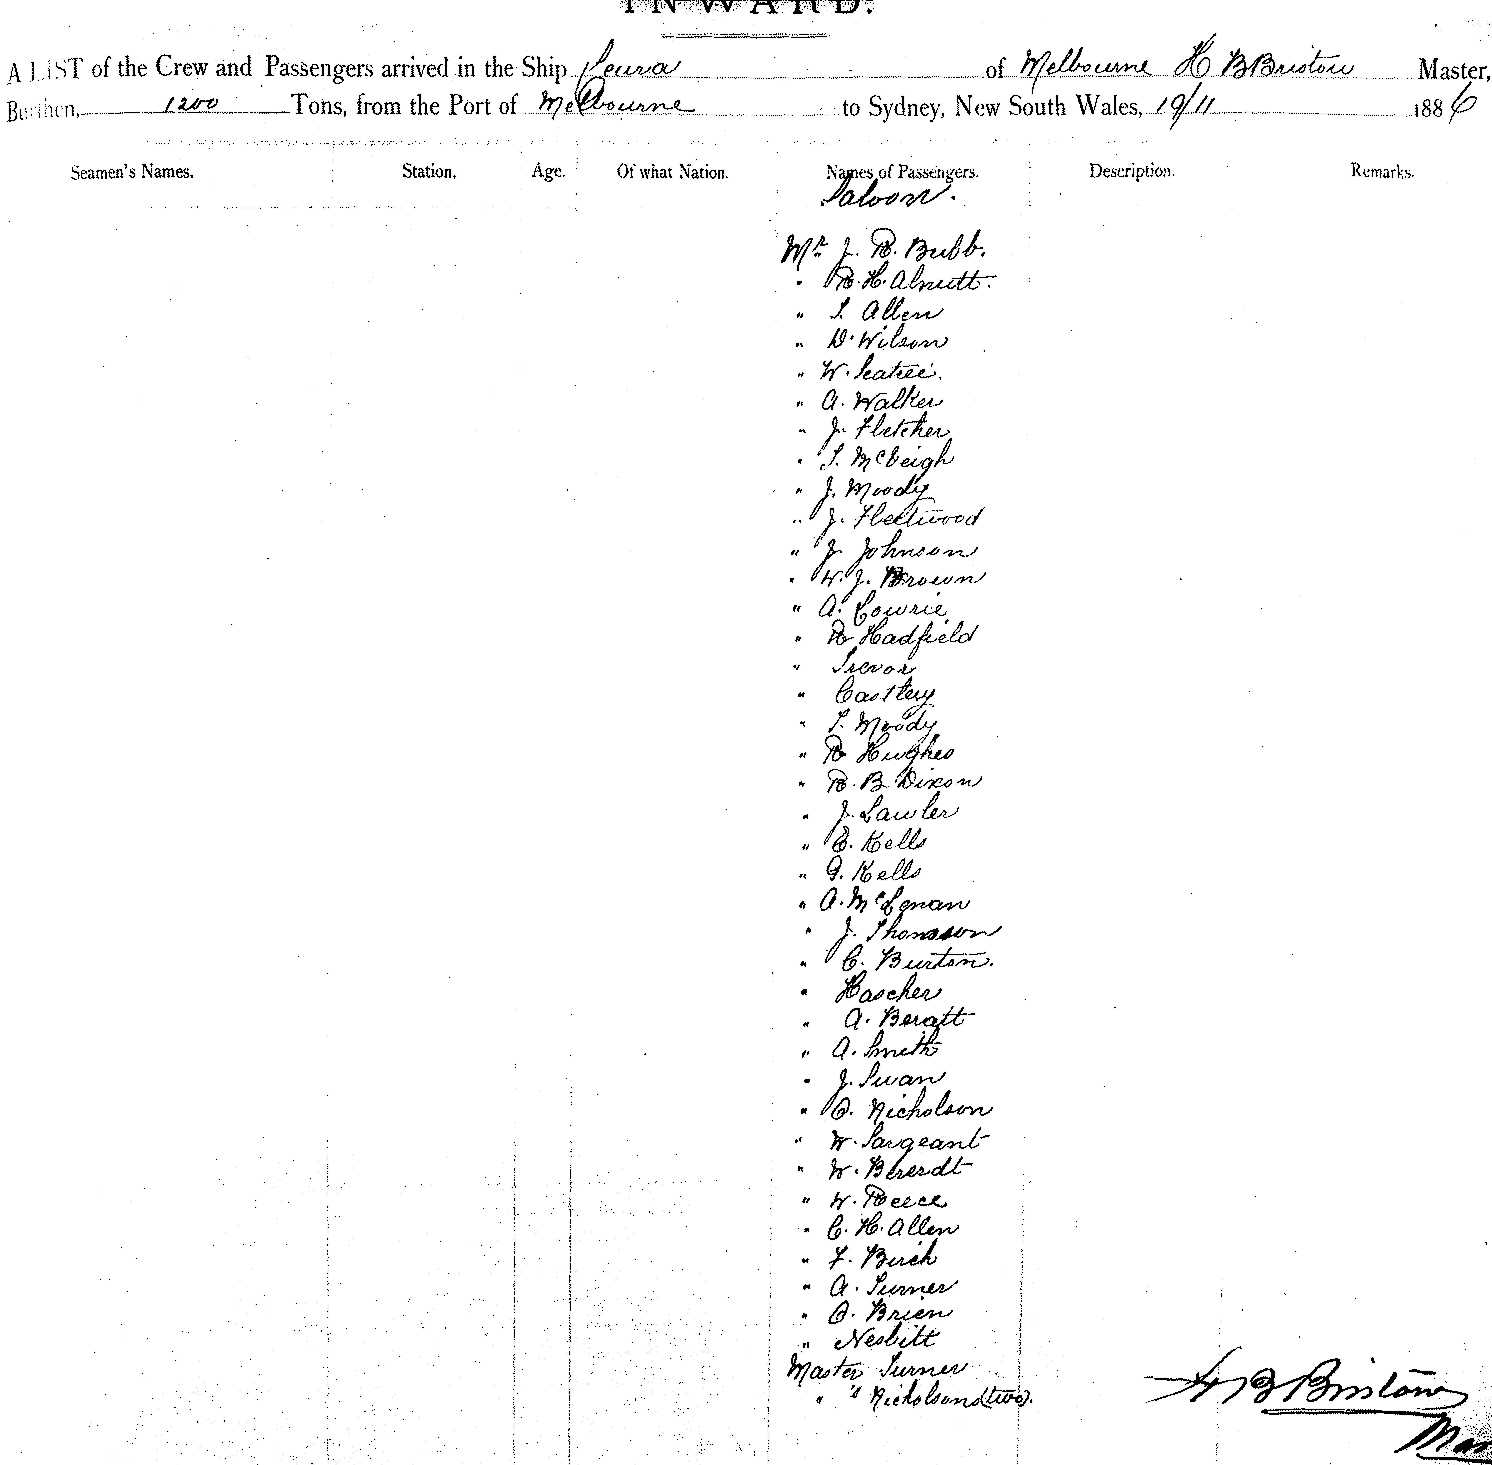 INWARD.
A LIST of the Crew and Passengers arrived in the Ship Leura of Melbourne H B Bristow Master,
Burthen, 1200 Tons, from the Port of Melbourne to Sydney, New South Wales, 19/11 1886
Seamen's Names. Station. Age. Of what Nation. Names of Passengers. Description. Remarks.
Saloon.
Mr J. R. Bubb.
" R. H. Alnutt.
" S. Allen
" D. Wilson
" W. Seatree.
" A. Walker
" J. Fletcher
" S. McVeigh
" J. Moody
" J. Fleetwood
" J. Johnson
" W. J. Brown
" A. Cowrie
" R Hadfield
" Trevor
" Castley
" S. Moody
" R Hughes
" R. B Dixon
" J. Lawler
" C. Kells
" G. Kells
" A. McLenan
" J. Thomson
" C. Burton.
" Hascher
" A. Beratt
" A. Smith
" J. Swan
" O. Nicholson
" W. Sargeant
" W. Bererdt
" W. Reece
" C. H. Allen
" F. Birch
" A. Turner
" O. Brien
" Nesbitt
Master Turner
" "s Nicholson (two).
H B Bristow
Mas